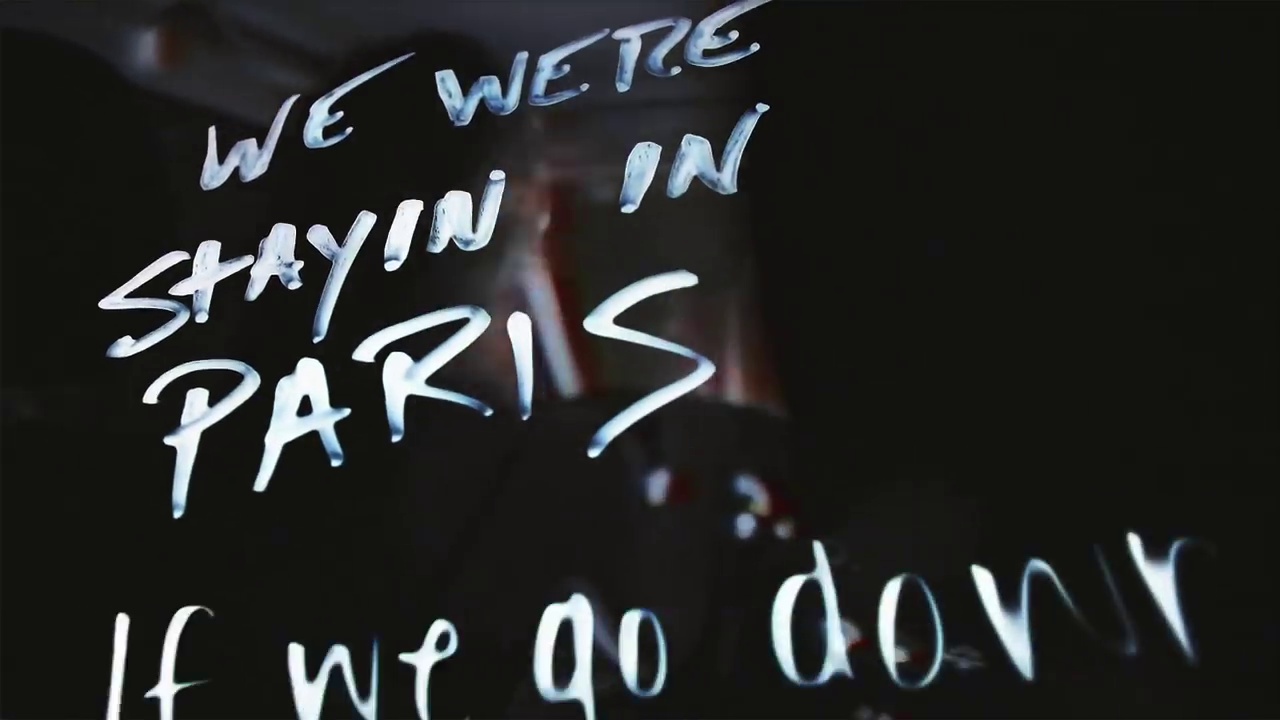 WE WERE
STAYIN IN
PARIS
If we go down